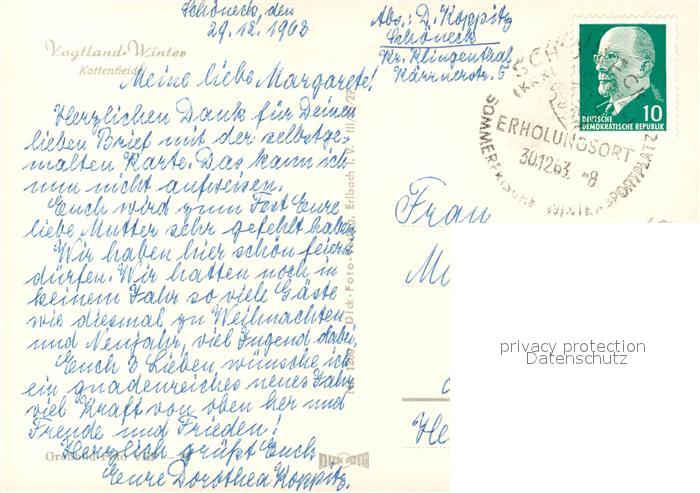 Schöneck, den
29.12.1963
Abs.: D. Koppitz
Schöneck
Kr. Klingenthal
Kärrnerstr. 5
Vogtland-Winter
Kottenheide
Meine liebe Margarete!
Herzlichen Dank für Deinen
lieben Brief mit der selbstge-
malten Karte. Das kann ich
nun nicht aufweisen.
Euch wird zum Fest Eure
liebe Mutter sehr gefehlt haben.
Wir haben hier schön feiern
dürfen. Wir hatten noch in
keinem Jahr so viele Gäste
wie diesmal zu Weihnachten
und Neujahr, viel Jugend dabei.
Euch 3 Lieben wünsche ich
ein gnadenreiches neues Jahr
viel Kraft von oben her und
Freude und Frieden!
Herzlich grüßt Euch
Eure Dorothea Koppitz.
DICK-FOTO
Erlbach i. V.
10
DEUTSCHE
DEMOKRATISCHE REPUBLIK
ERHOLUNGSORT
30.12.63.-8
SOMMERFRISCHE WINTERSPORTPLATZ
Frau
privacy protection
Datenschutz